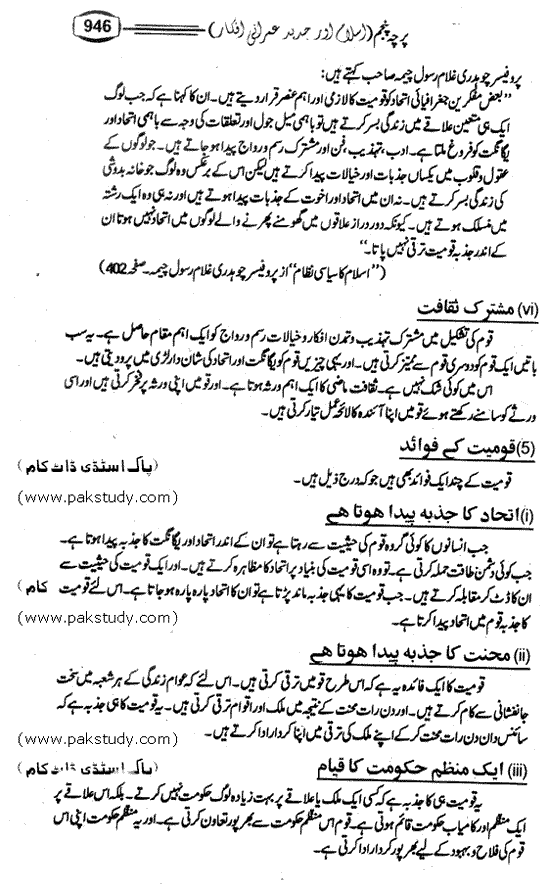 946
پرچہ پنجم (اسلام اور جدید عمرانی افکار)
پروفیسر چوہدری غلام رسول چیمہ صاحب کہتے ہیں:
”بعض مفکرین جغرافیائی اتحاد کو قومیت کا لازمی اور اہم عنصر قرار دیتے ہیں۔ ان کا کہنا ہے کہ جب لوگ
ایک ہی متعین علاقے میں زندگی بسر کرتے ہیں تو باہمی میل جول اور تعلقات کی وجہ سے باہمی اتحاد اور
یگانگت کو فروغ ملتا ہے۔ ادب، تہذیب، فن اور مشترک رسم و رواج پیدا ہو جاتے ہیں۔ جو لوگوں کے
عقول و قلوب میں یکساں جذبات اور خیالات پیدا کرتے ہیں لیکن اس کے برعکس وہ لوگ جو خانہ بدوشی
کی زندگی بسر کرتے ہیں۔ نہ ان میں اتحاد اور اخوت کے جذبات پیدا ہوتے ہیں اور نہ ہی وہ ایک رشتہ
میں منسلک ہوتے ہیں۔ کیونکہ دور دراز علاقوں میں گھومنے پھرنے والے لوگوں میں اتحاد نہیں ہوتا ان
کے اندر جذبہ قومیت ترقی نہیں پاتا۔“
(”اسلام کا سیاسی نظام“ از پروفیسر چوہدری غلام رسول چیمہ۔ صفحہ 402)
(vi) مشترک ثقافت
قوم کی تشکیل میں مشترک تہذیب و تمدن افکار و خیالات رسم و رواج کو ایک اہم مقام حاصل ہے۔ یہ سب
باتیں ایک قوم کو دوسری قوم سے ممیز کرتی ہیں۔ اور یہی چیزیں قوم کو یگانگت اور اتحاد کی شان دار لڑی میں پرو دیتی ہیں۔
اس میں کوئی شک نہیں ہے۔ ثقافت ماضی کا ایک اہم ورثہ ہوتا ہے۔ اور قومیں اپنی ورثہ پر فخر کرتی ہیں اور اسی
ورثے کو سامنے رکھتے ہوئے قومیں اپنا آئندہ کا لائحہ عمل تیار کرتی ہیں۔
(5) قومیت کے فوائد
(پاک اسٹڈی ڈاٹ کام)
قومیت کے چند ایک فوائد بھی ہیں جو کہ درج ذیل ہیں۔
(www.pakstudy.com)
(i) اتحاد کا جذبہ پیدا ہوتا ہے
جب انسانوں کا کوئی گروہ قوم کی حیثیت سے رہتا ہے تو ان کے اندر اتحاد اور یگانگت کا جذبہ پیدا ہوتا ہے۔
جب کوئی دشمن طاقت حملہ کرتی ہے۔ تو وہ اسی قومیت کی بنیاد پر اتحاد کا مظاہرہ کرتے ہیں۔ اور ایک قومیت کی حیثیت سے
ان کا ڈٹ کر مقابلہ کرتے ہیں۔ جب قومیت کا یہی جذبہ ماند پڑتا ہے تو ان کا اتحاد پارہ پارہ ہو جاتا ہے۔ اس لئے قومیت کام)
کا جذبہ قوم میں اتحاد پیدا کرتا ہے۔
(www.pakstudy.com)
(ii) محنت کا جذبہ پیدا ہوتا ہے
قومیت کا ایک فائدہ یہ ہے کہ اس طرح قومیں ترقی کرتی ہیں۔ اس لئے کہ عوام زندگی کے ہر شعبہ میں سخت
جانفشانی سے کام کرتے ہیں۔ اور دن رات محنت کے نتیجہ میں ملک اور اقوام ترقی کرتی ہیں۔ یہ قومیت کا ہی جذبہ ہے کہ
سائنس دان دن رات محنت کر کے اپنے ملک کی ترقی میں اپنا کردار ادا کرتے ہیں۔
(www.pakstudy.com)
(iii) ایک منظم حکومت کا قیام
(پاک اسٹڈی ڈاٹ کام
یہ قومیت ہی کا جذبہ ہے کہ کسی ایک ملک یا علاقے پر بہت زیادہ لوگ حکومت نہیں کرتے۔ بلکہ اس علاقے پر
ایک منظم اور کامیاب حکومت قائم ہوتی ہے۔ قوم اس منظم حکومت سے بھرپور تعاون کرتی ہے۔ اور یہ منظم حکومت اپنی اس
قوم کی فلاح و بہبود کے لیے بھرپور کردار ادا کرتی ہے۔